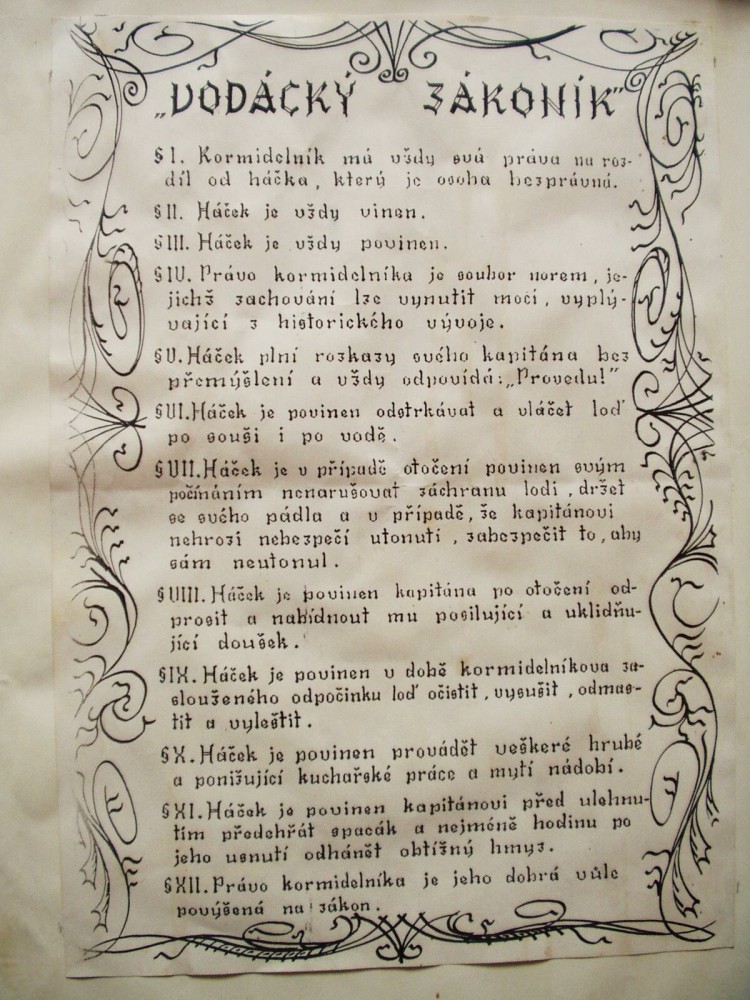 „VODÁCKÝ ZÁKONÍK”
§ I. Kormidelník má vždy svá práva na roz-
díl od háčka, který je osoba bezprávná.
§ II. Háček je vždy vinen.
§ III. Háček je vždy povinen.
§ IV. Právo kormidelníka je soubor norem, je-
jichž zachování lze vynutit mocí, vyplý-
vající z historického vývoje.
§ V. Háček plní rozkazy svého kapitána bez
přemýšlení a vždy odpovídá: „Provedu!”
§ VI. Háček je povinen odstrkávat a vláčet loď
po souši i po vodě.
§ VII. Háček je v případě otočení povinen svým
počínáním nenarušovat záchranu lodi, držet
se svého pádla a v případě, že kapitánovi
nehrozí nebezpečí utonutí, zabezpečit to, aby
sám neutonul.
§ VIII. Háček je povinen kapitána po otočení od-
prosit a nabídnout mu posilující a uklidňu-
jící doušek.
§ IX. Háček je povinen v době kormidelníkova za-
slouženého odpočinku loď očistit, vysušit, odmas-
tit a vyleštit.
§ X. Háček je povinen provádět veškeré hrubé
a ponižující kuchařské práce a mytí nádobí.
§ XI. Háček je povinen kapitánovi před ulehnu-
tím předehřát spacák a nejméně hodinu po
jeho usnutí odhánět obtížný hmyz.
§ XII. Právo kormidelníka je jeho dobrá vůle
povýšená na zákon.